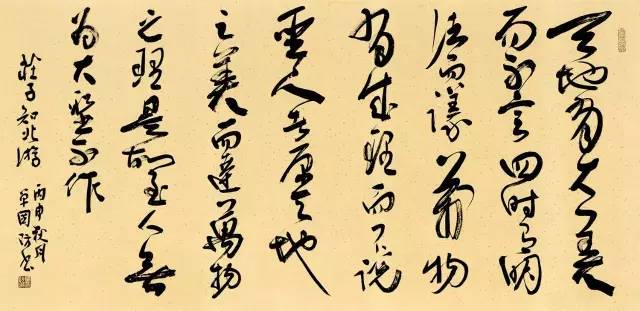 天地有大美
而不言四时有明
法而不議萬物
有成理而不说
聖人者原天地
之美而達萬物
之理是故至人無
為大聖不作
莊子知北游
丙申秋月